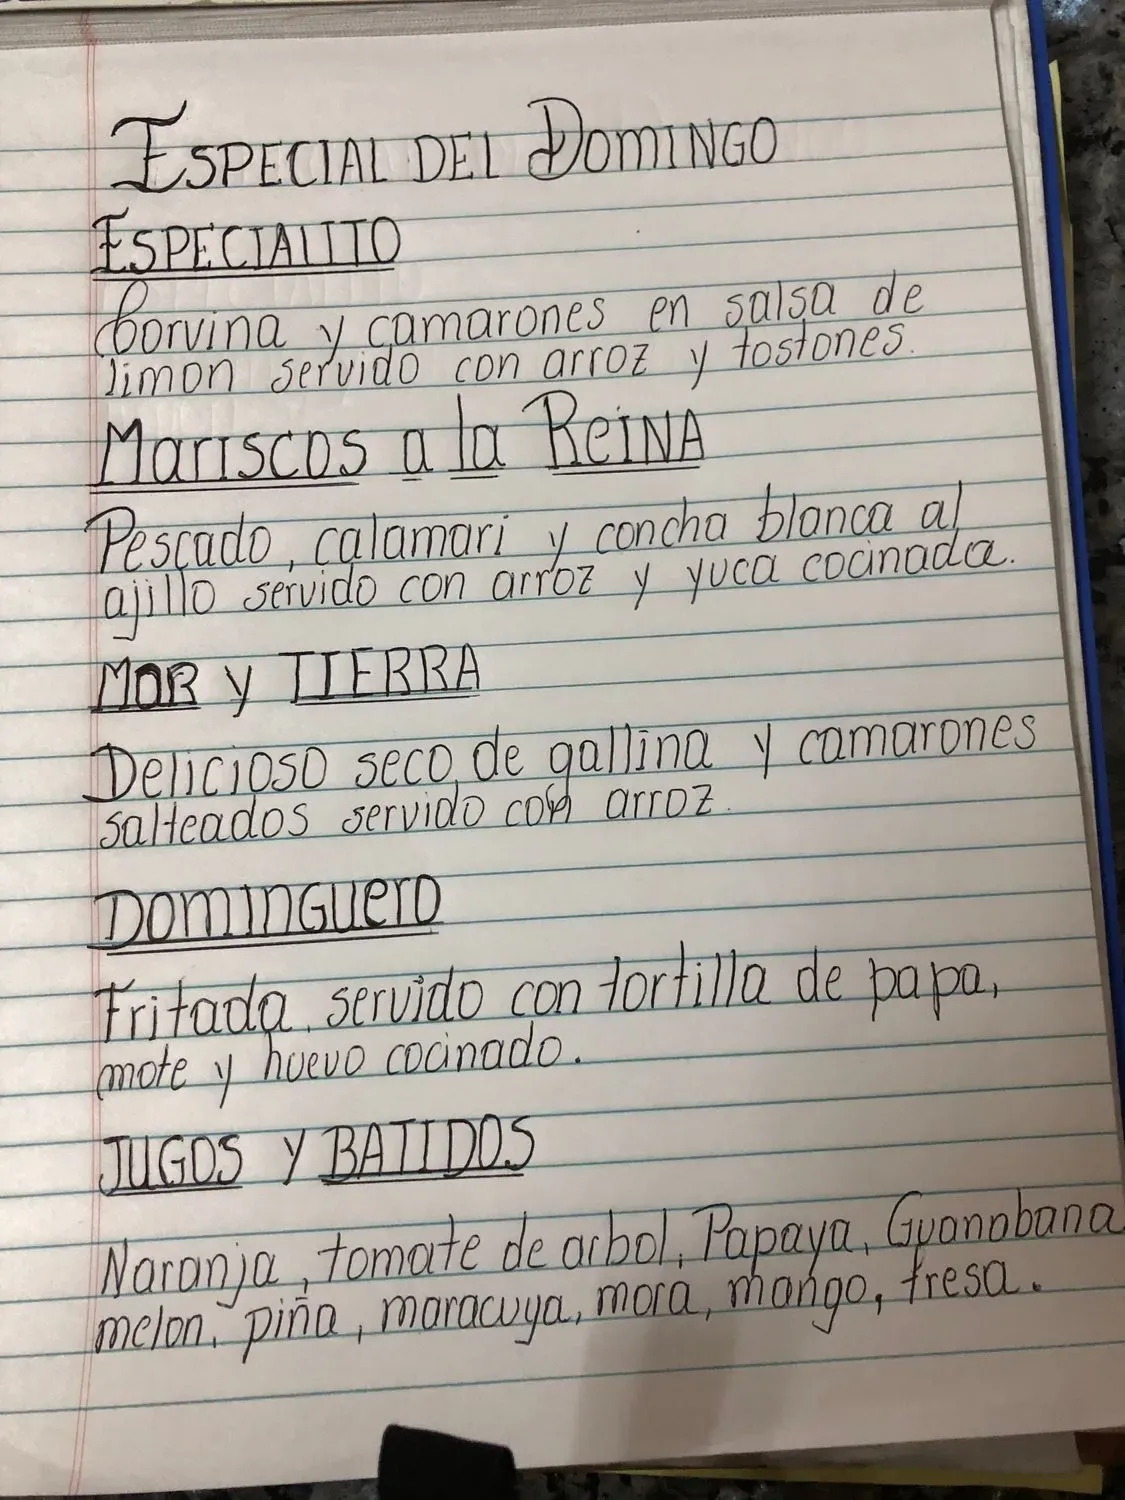 ESPECIAL DEL DOMINGO
ESPECIALITO
Corvina y camarones en salsa de
limon servido con arroz y tostones.
Mariscos a la REINA
Pescado, calamari y concha blanca al
ajillo servido con arroz y yuca cocinada.
MAR y TIERRA
Delicioso seco de gallina y camarones
salteados servido con arroz.
Dominguero
Fritada, servido con tortilla de papa,
mote y huevo cocinado.
JUGOS Y BATIDOS
Naranja, tomate de arbol, Papaya, Guanabana
melon, piña, maracuya, mora, mango, fresa.